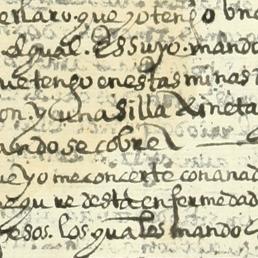 declaro que yo tengo un
el qual es suyo mando
que tengo en estas minas
on. y una silla xineta
ando se cobre
ue yo me concerte con ana d
que desta enfermedad
pesos. los quales mando